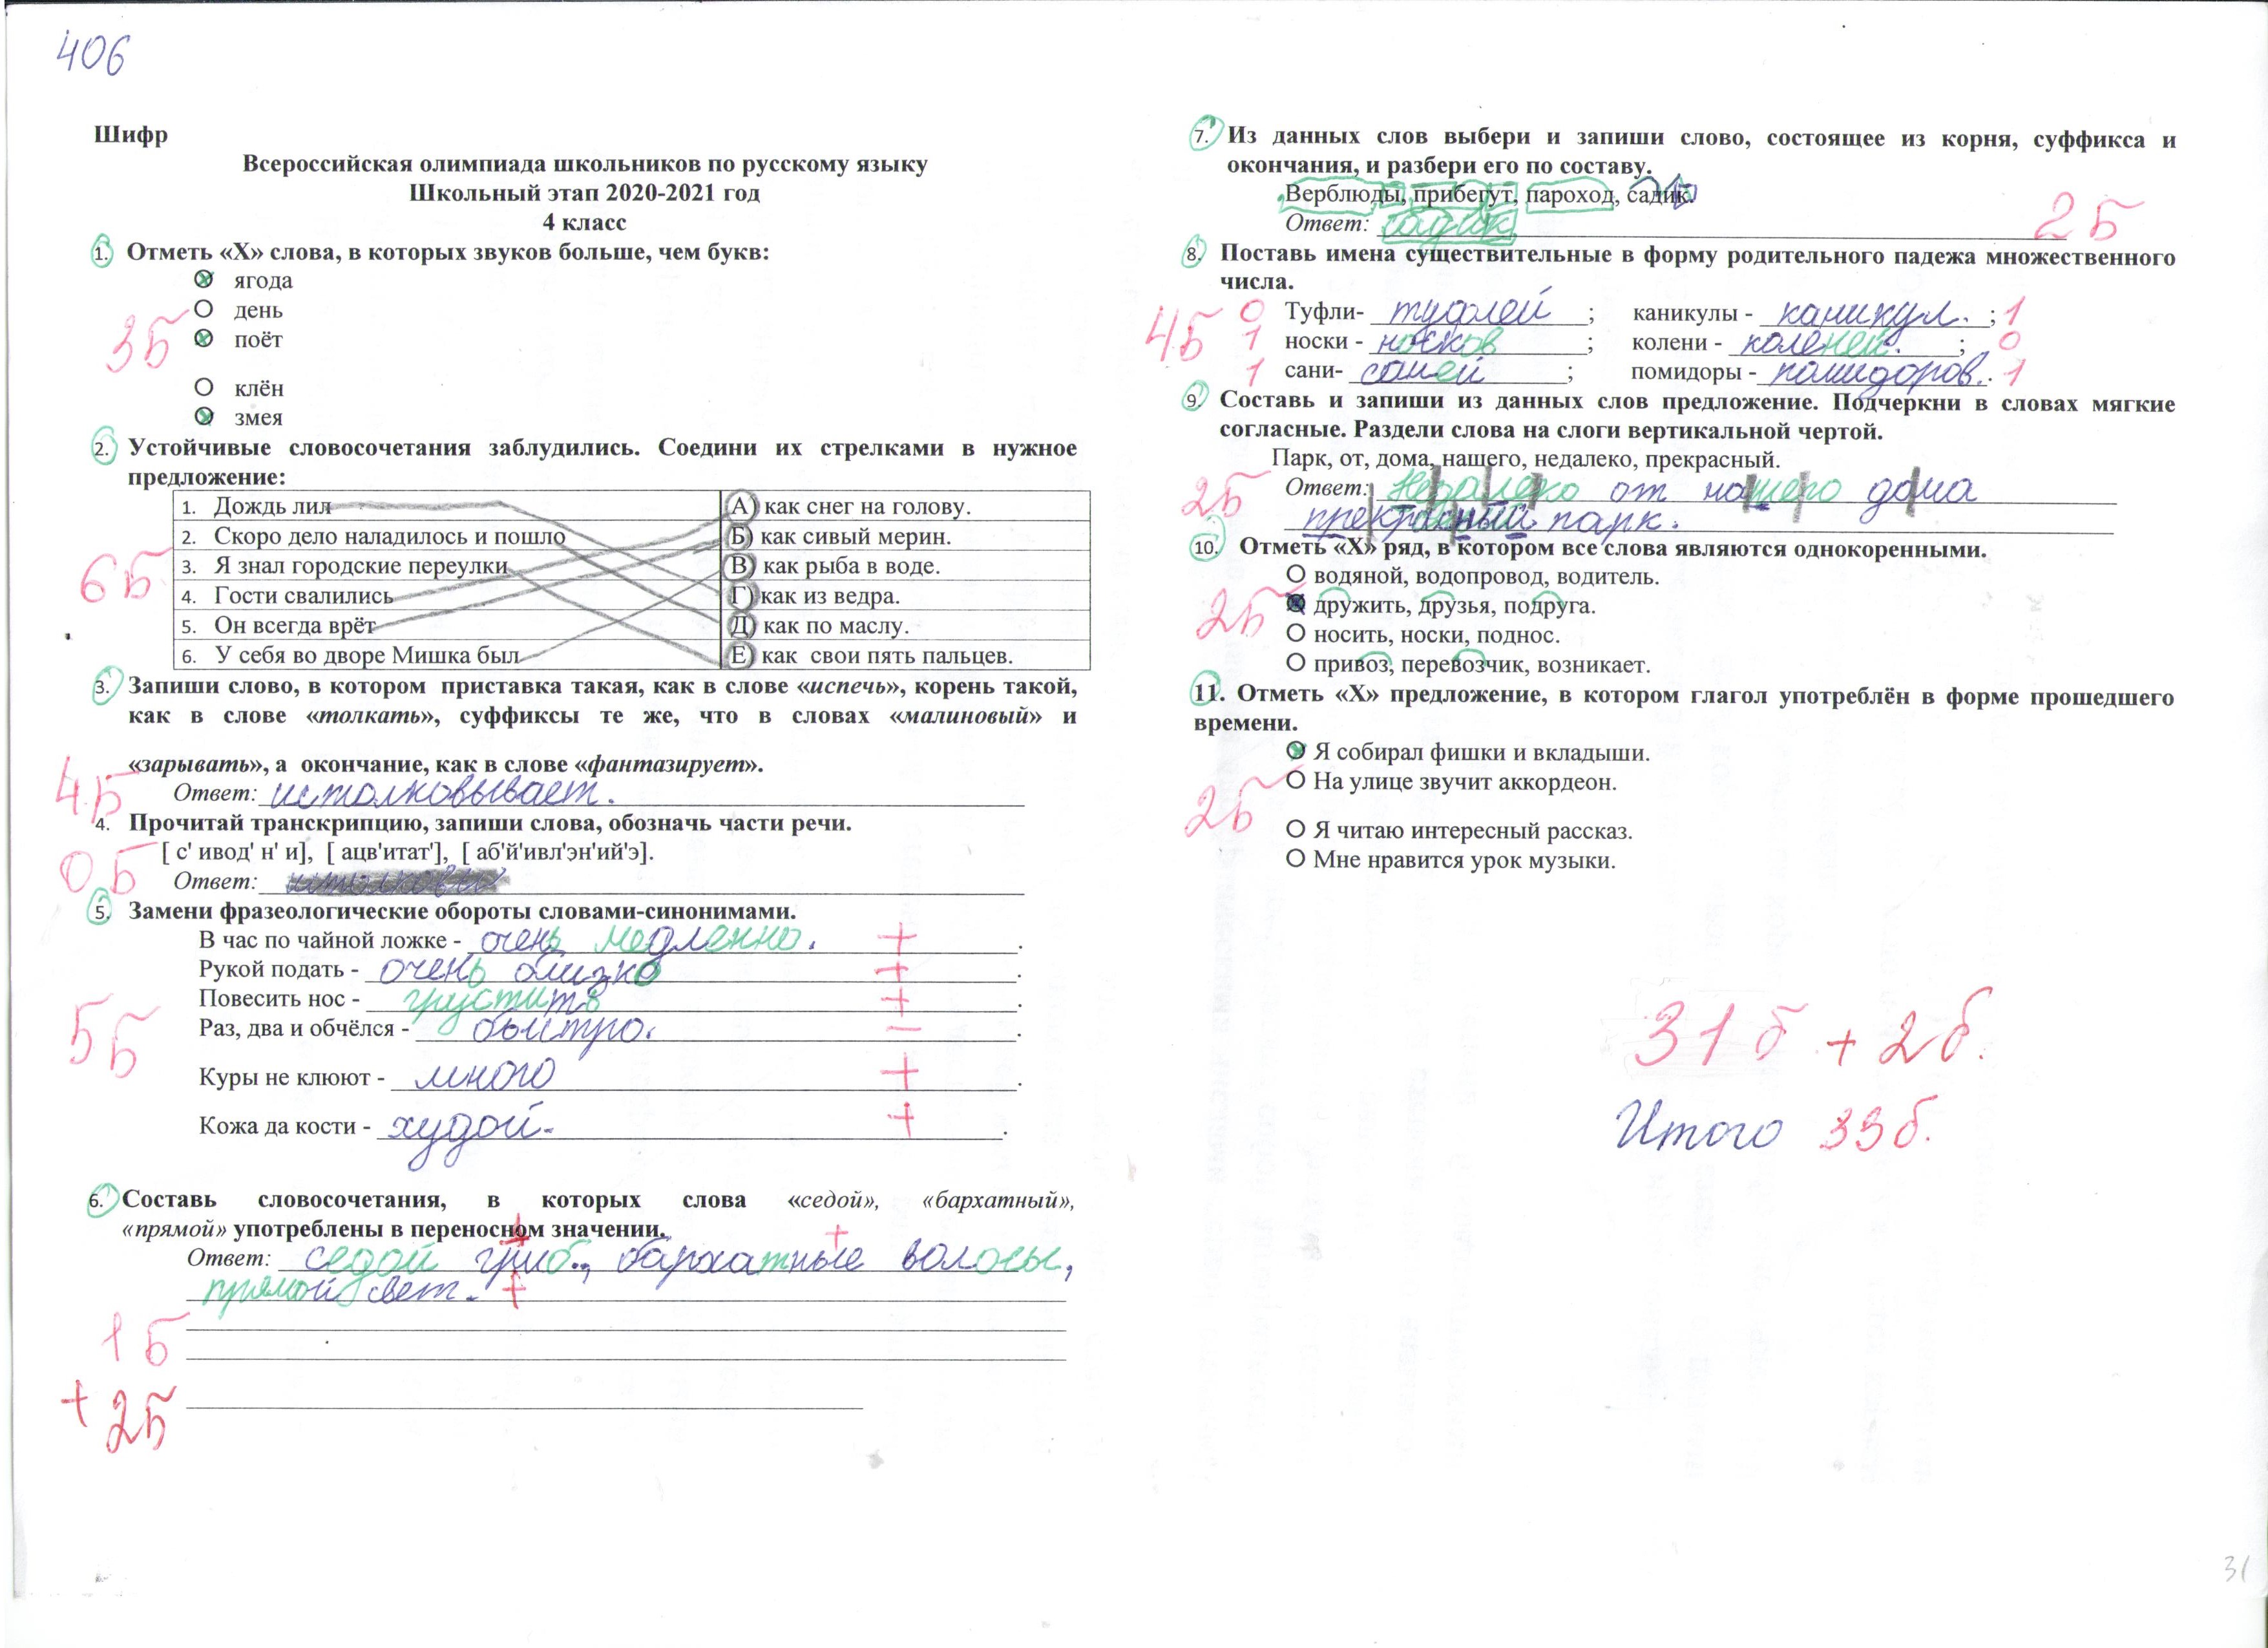 406
Шифр
Всероссийская олимпиада школьников по русскому языку
Школьный этап 2020-2021 год
4 класс
1. Отметь «Х» слова, в которых звуков больше, чем букв:
ягода
день
3Б
поёт
клён
змея
2. Устойчивые словосочетания заблудились. Соедини их стрелками в нужное
предложение:
1. Дождь лил А) как снег на голову.
2. Скоро дело наладилось и пошло Б) как сивый мерин.
6Б
3. Я знал городские переулки В) как рыба в воде.
4. Гости свалились Г) как из ведра.
5. Он всегда врёт Д) как по маслу.
6. У себя во дворе Мишка был Е) как свои пять пальцев.
3. Запиши слово, в котором приставка такая, как в слове «испечь», корень такой,
как в слове «толкать», суффиксы те же, что в словах «малиновый» и
«зарывать», а окончание, как в слове «фантазирует».
4Б
Ответ: истолковывает.
4. Прочитай транскрипцию, запиши слова, обозначь части речи.
[ с' ивод' н' и], [ ацв'итат'], [ аб'й'ивл'эн'ий'э].
0Б
Ответ:
5. Замени фразеологические обороты словами-синонимами.
В час по чайной ложке - очень медленно. +
Рукой подать - очень близко +
Повесить нос - грустить +
5Б
Раз, два и обчёлся - быстро. −
Куры не клюют - много +
Кожа да кости - худой. +
6. Составь словосочетания, в которых слова «седой», «бархатный»,
«прямой» употреблены в переносном значении.
+ +
Ответ: седой гриб., бархатные волосы,
прямой свет. +
1Б
+2Б
7. Из данных слов выбери и запиши слово, состоящее из корня, суффикса и
окончания, и разбери его по составу.
Верблюды, прибегут, пароход, садик.
Ответ: садик 2Б
8. Поставь имена существительные в форму родительного падежа множественного
числа.
4Б
0 Туфли- туфлей ; каникулы - каникул. ; 1
1 носки - носков ; колени - коленей. ; 0
1 сани- саней ; помидоры - помидоров. . 1
9. Составь и запиши из данных слов предложение. Подчеркни в словах мягкие
согласные. Раздели слова на слоги вертикальной чертой.
Парк, от, дома, нашего, недалеко, прекрасный.
2Б
Ответ: Недалеко от нашего дома
прекрасный парк.
10. Отметь «Х» ряд, в котором все слова являются однокоренными.
водяной, водопровод, водитель.
2Б
дружить, друзья, подруга.
носить, носки, поднос.
привоз, перевозчик, возникает.
11. Отметь «Х» предложение, в котором глагол употреблён в форме прошедшего
времени.
Я собирал фишки и вкладыши.
На улице звучит аккордеон.
2Б
Я читаю интересный рассказ.
Мне нравится урок музыки.
31б + 2б.
Итого 33б.
31